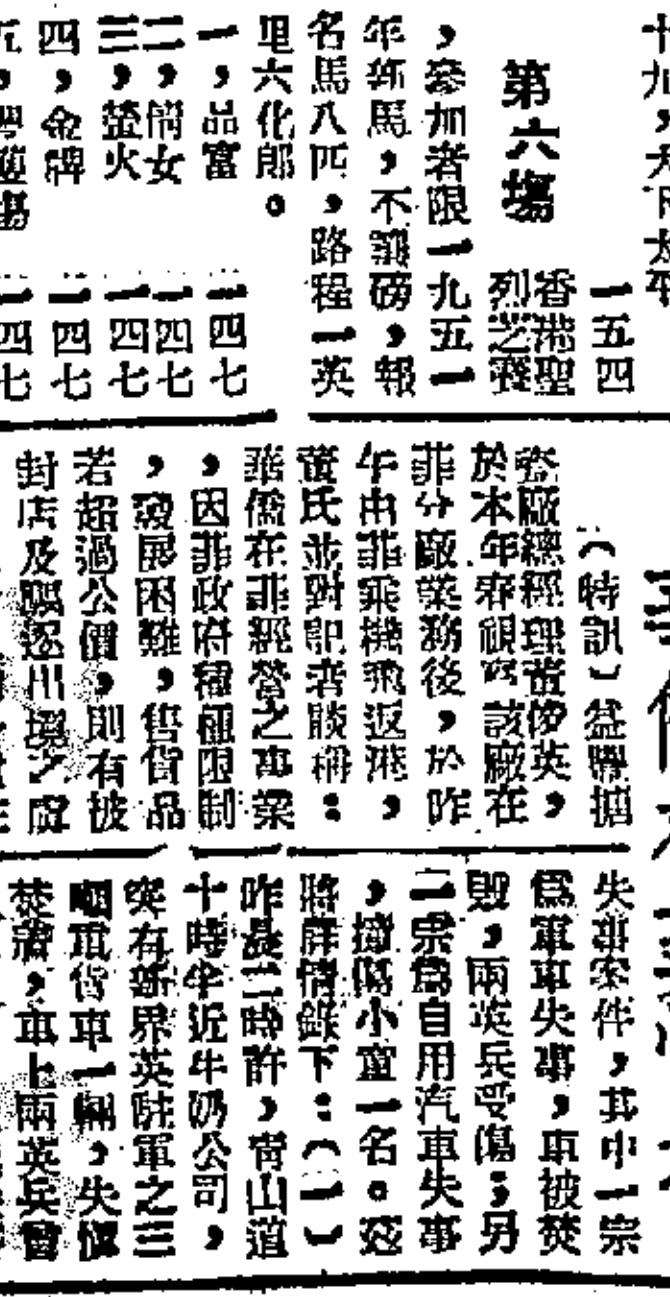 第六場
香港聖
烈之賽
一五四
，參加者限一九五一
年新馬，不讓磅，報
名馬八匹，路程一英
里六化郎。
一，品富 一四七
二，簡女 一四七
三，螢火 一四七
四，金牌 一四七
一四七
（特訊）益豐搪
瓷廠總經理董伊英，
於本年春視察該廠在
菲分廠業務後，於昨
午由菲乘機飛返港，
董氏並對記者談稱：
華僑在菲經營之事業
，因菲政府種種限制
，發展困難，售貨品
若超過公價，則有被
封店及驅逐出境之虞
失事案件，其中一宗
為軍車失事，車被焚
毀，兩英兵受傷；另
二宗為自用汽車失事
，撞傷小童一名。茲
將詳情錄下：（一）
昨晨二時許，青山道
十咪半近牛奶公司，
突有新界英駐軍之三
噸軍貨車一輛，失慎
焚着，車上兩英兵曾